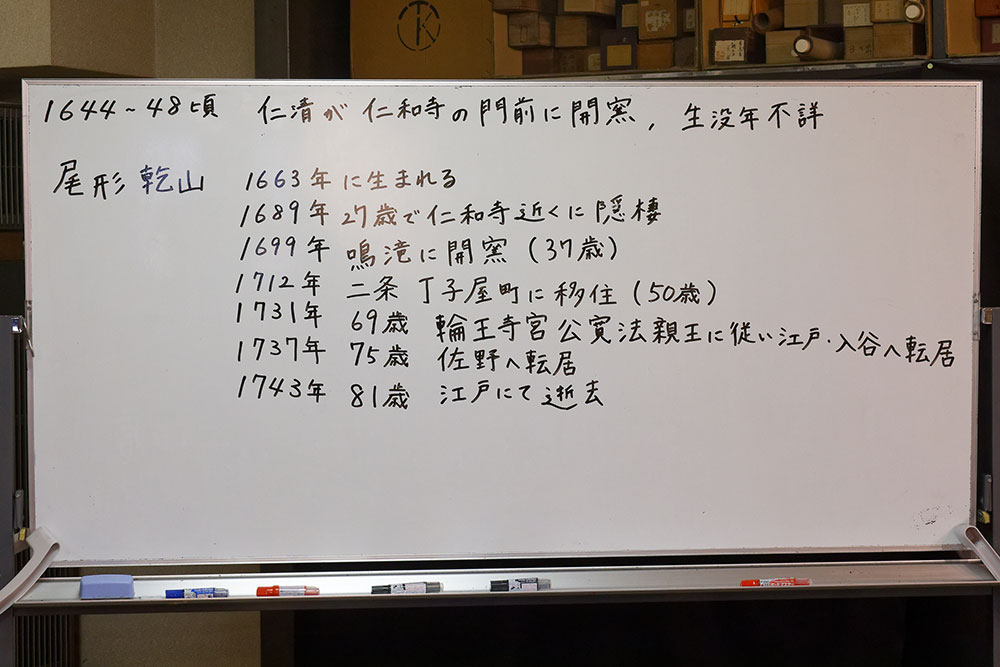 1644~48頃 仁清が仁和寺の門前に開窯, 生没年不詳
尾形乾山 1663年に生まれる
1689年 27歳で仁和寺近くに隠棲
1699年 鳴滝に開窯(37歳)
1712年 二条 丁子屋町に移住(50歳)
1731年 69歳 輪王寺宮公寛法親王に従い江戸・入谷へ転居
1737年 75歳 佐野へ転居
1743年 81歳 江戸にて逝去